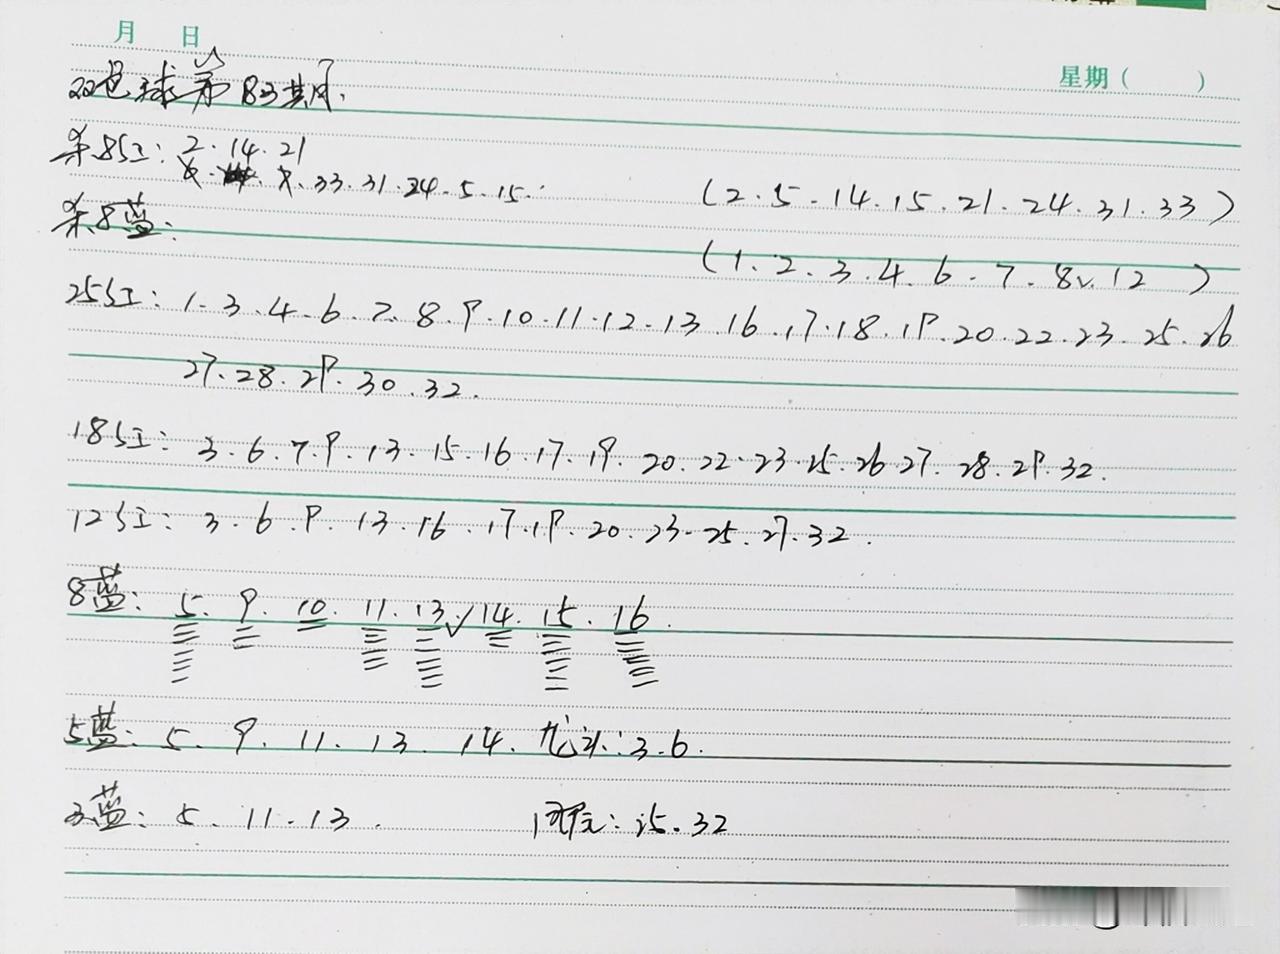 月 日
星期( )
双色球第83期.
杀8红: 2.14.21
33.31.24.5.15.
(2.5.14.15.21.24.31.33)
杀8蓝:
(1.2.3.4.6.7.8.12)
25红: 1.3.4.6.7.8.9.10.11.12.13.16.17.18.19.20.22.23.25.26
27.28.29.30.32.
18红: 3.6.7.9.13.15.16.17.19.20.22.23.25.26.27.28.29.32.
12红: 3.6.9.13.16.17.19.20.23.25.27.32.
8蓝: 5.9.10.11.13.✓14.15.16.
5蓝: 5.9.11.13.14. 龙头:3.6.
3蓝: 5.11.13. 凤尾: 25.32